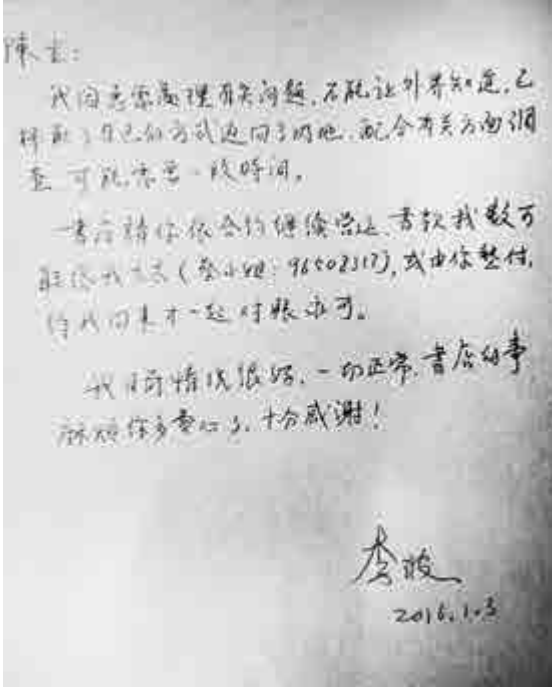 陳生:
我因急需處理有关问题,不能让外界知道,已
採取了自己的方式返回了内地,配合有关方面调
查 可能需要一段時间。
書店請你依合约继续営业,書款我数可
联络我太太(蔡小姐: 96502317),或由你墊付,
待我回来才一起对账亦可。
我目前情况很好,一切正常,書店的事
麻烦你多费心了,十分感谢!
李波
2016.1.3